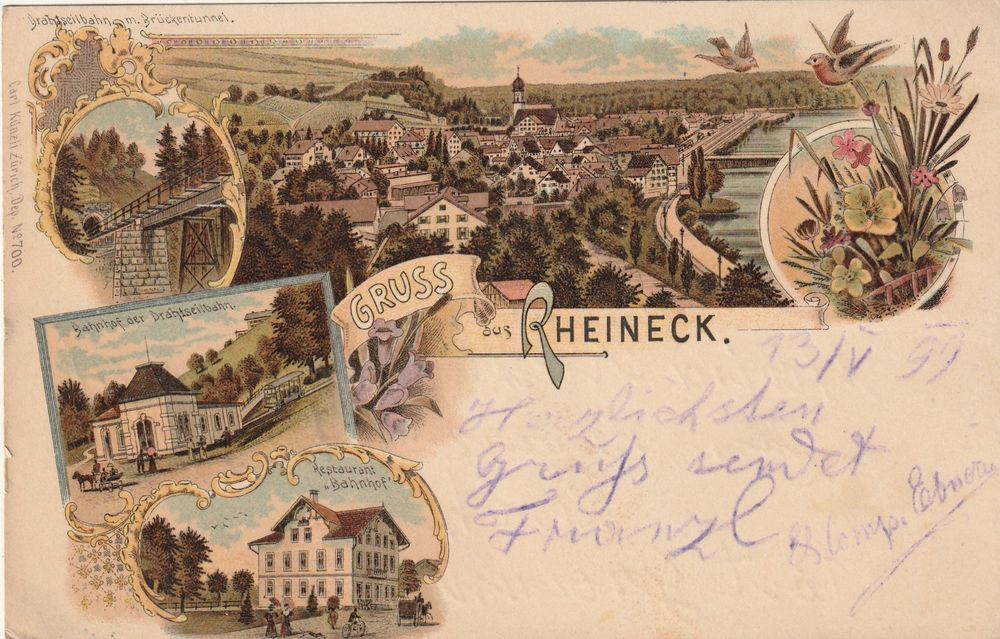 Drahtseilbahn m. Brückentunnel.
Carl Künzli Zürich, Dep. No 700.
GRUSS
aus RHEINECK.
Bahnhof der Drahtseilbahn.
Restaurant
„Bahnhof"
13/V 99
Herzlichsten
Gruss sendet
Franzl
& Comp.